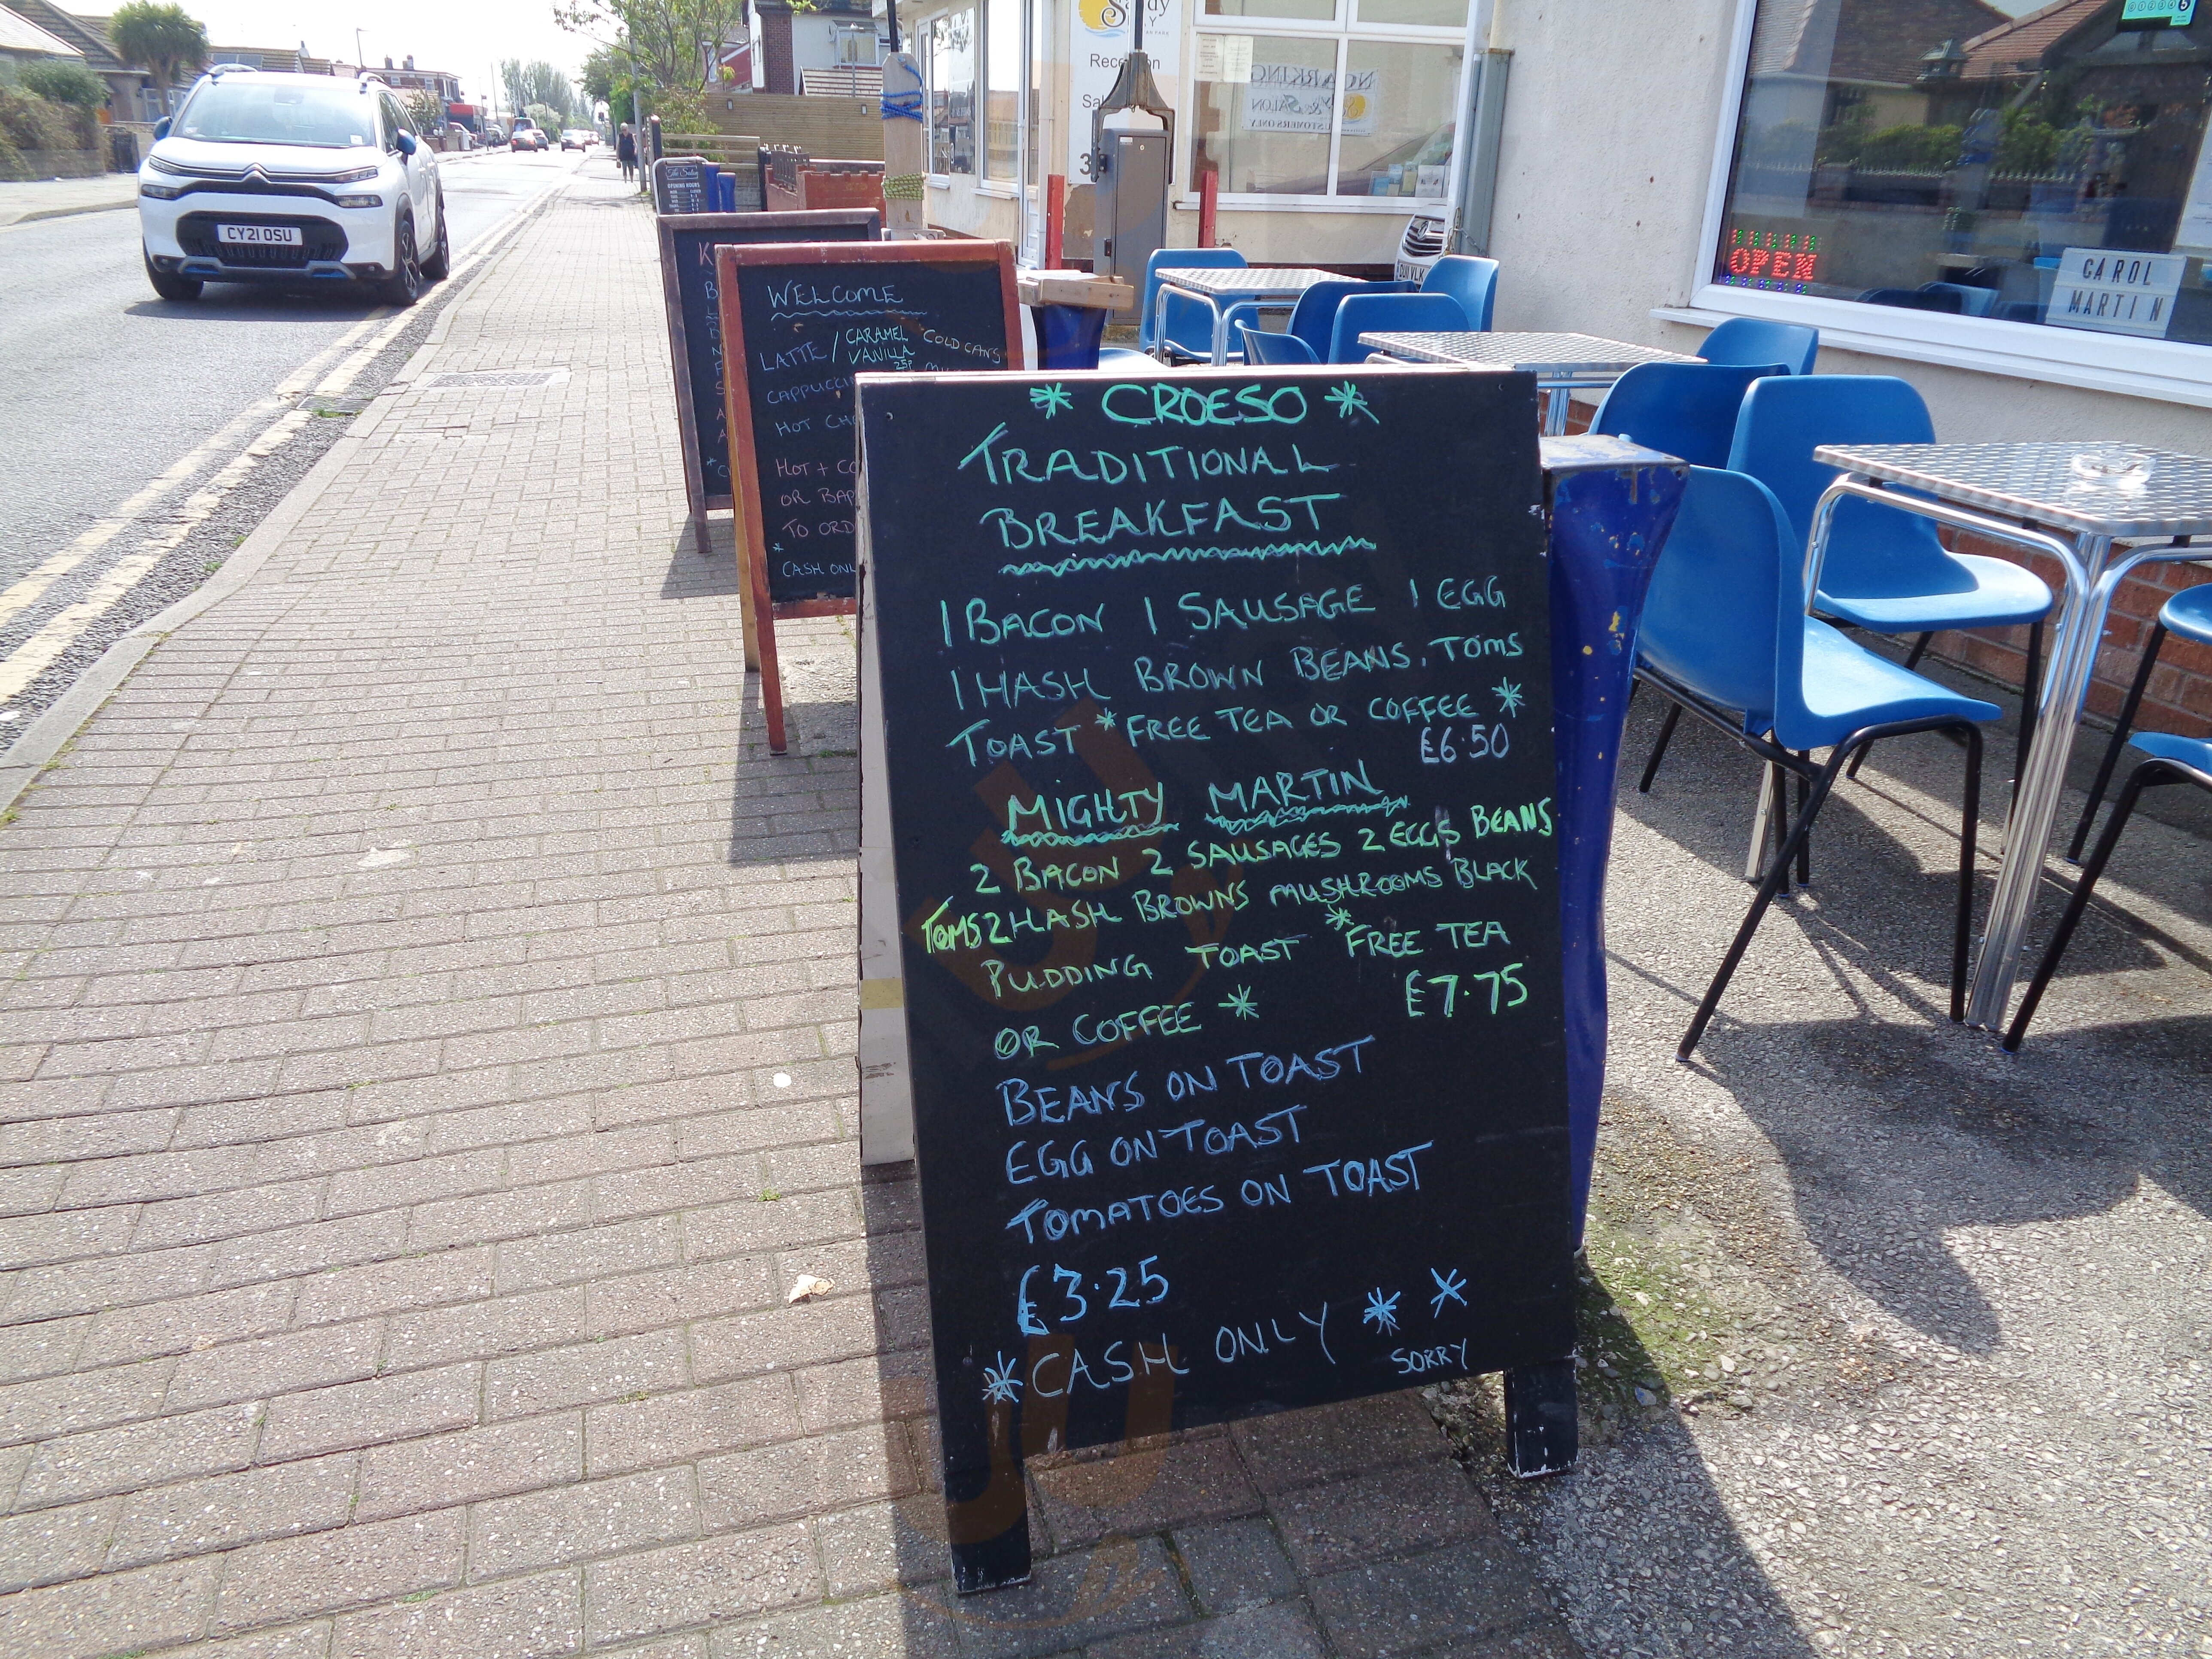 * CROESO *
TRADITIONAL
BREAKFAST
1 BACON 1 SAUSAGE 1 EGG
1 HASH BROWN BEANS, TOMS
TOAST * FREE TEA OR COFFEE *
£6.50
MIGHTY MARTIN
2 BACON 2 SAUSAGES 2 EGGS BEANS
TOMS 2 HASH BROWNS MUSHROOMS BLACK
PUDDING TOAST * FREE TEA
OR COFFEE * £7.75
BEANS ON TOAST
EGG ON TOAST
TOMATOES ON TOAST
£3.25
* CASH ONLY * *
SORRY
WELCOME
LATTE / CARAMEL COLD CANS
VANILLA
25P
HOT
HOT +
TO
CASH
CY21 OSU
OPEN
CAROL
MARTIN
CUSTOMERS ONLY
OPENING HOURS